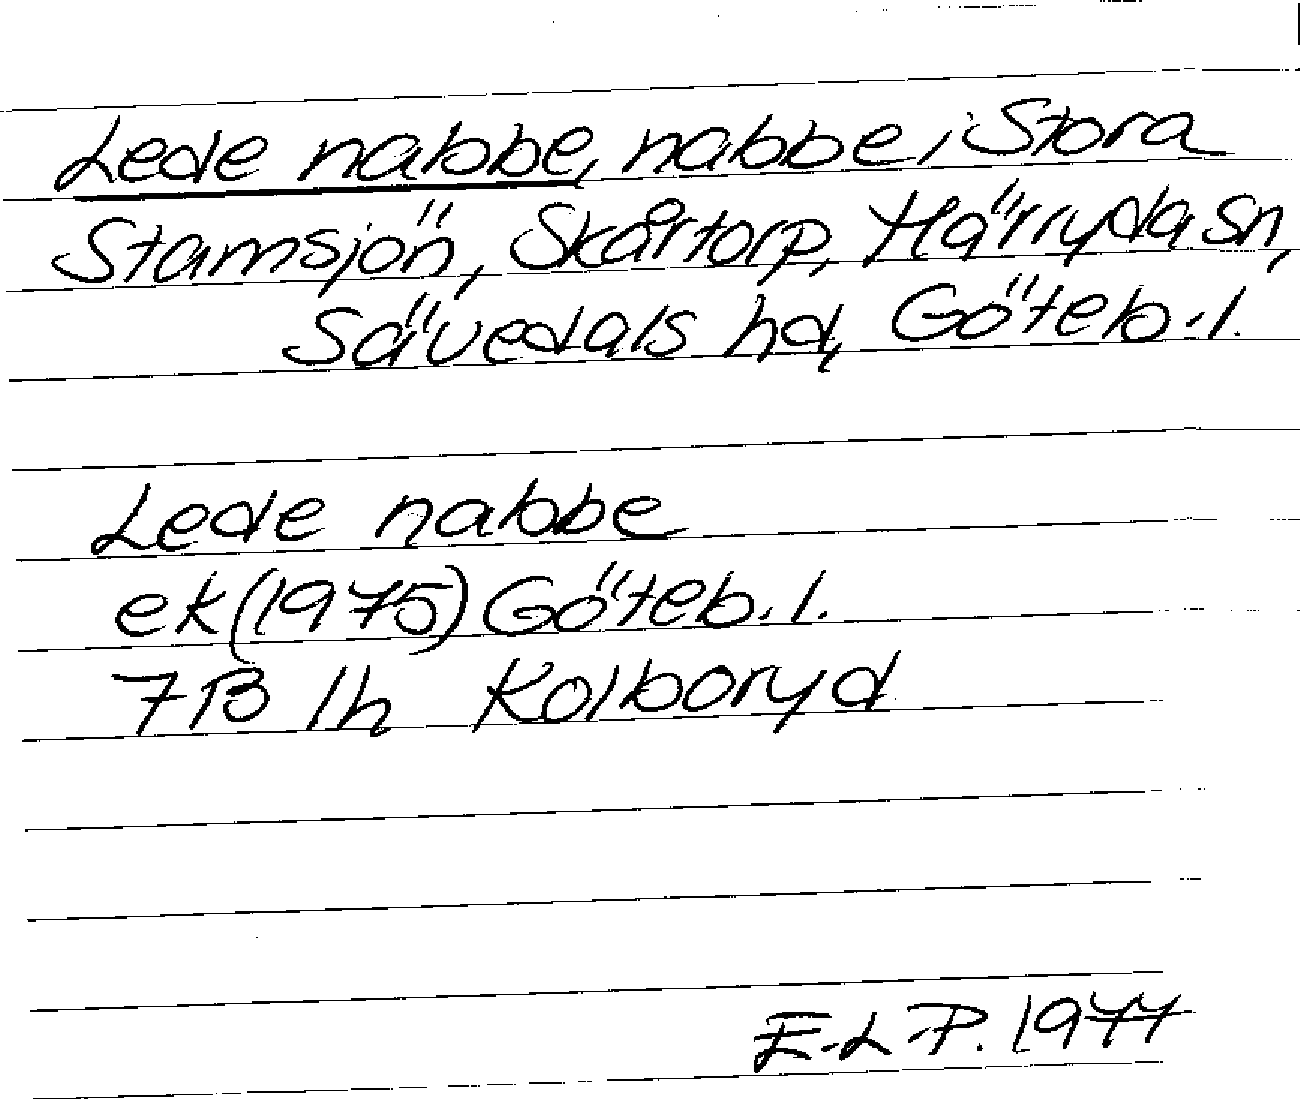 Lede nabbe, nabbe i Stora
Stamsjön, Skårtorp, Härryda sn,
Sävedals hd, Göteb. l.
Lede nabbe
ek (1975) Göteb. l.
7B 1h Kolboryd
E.L.P. 1977